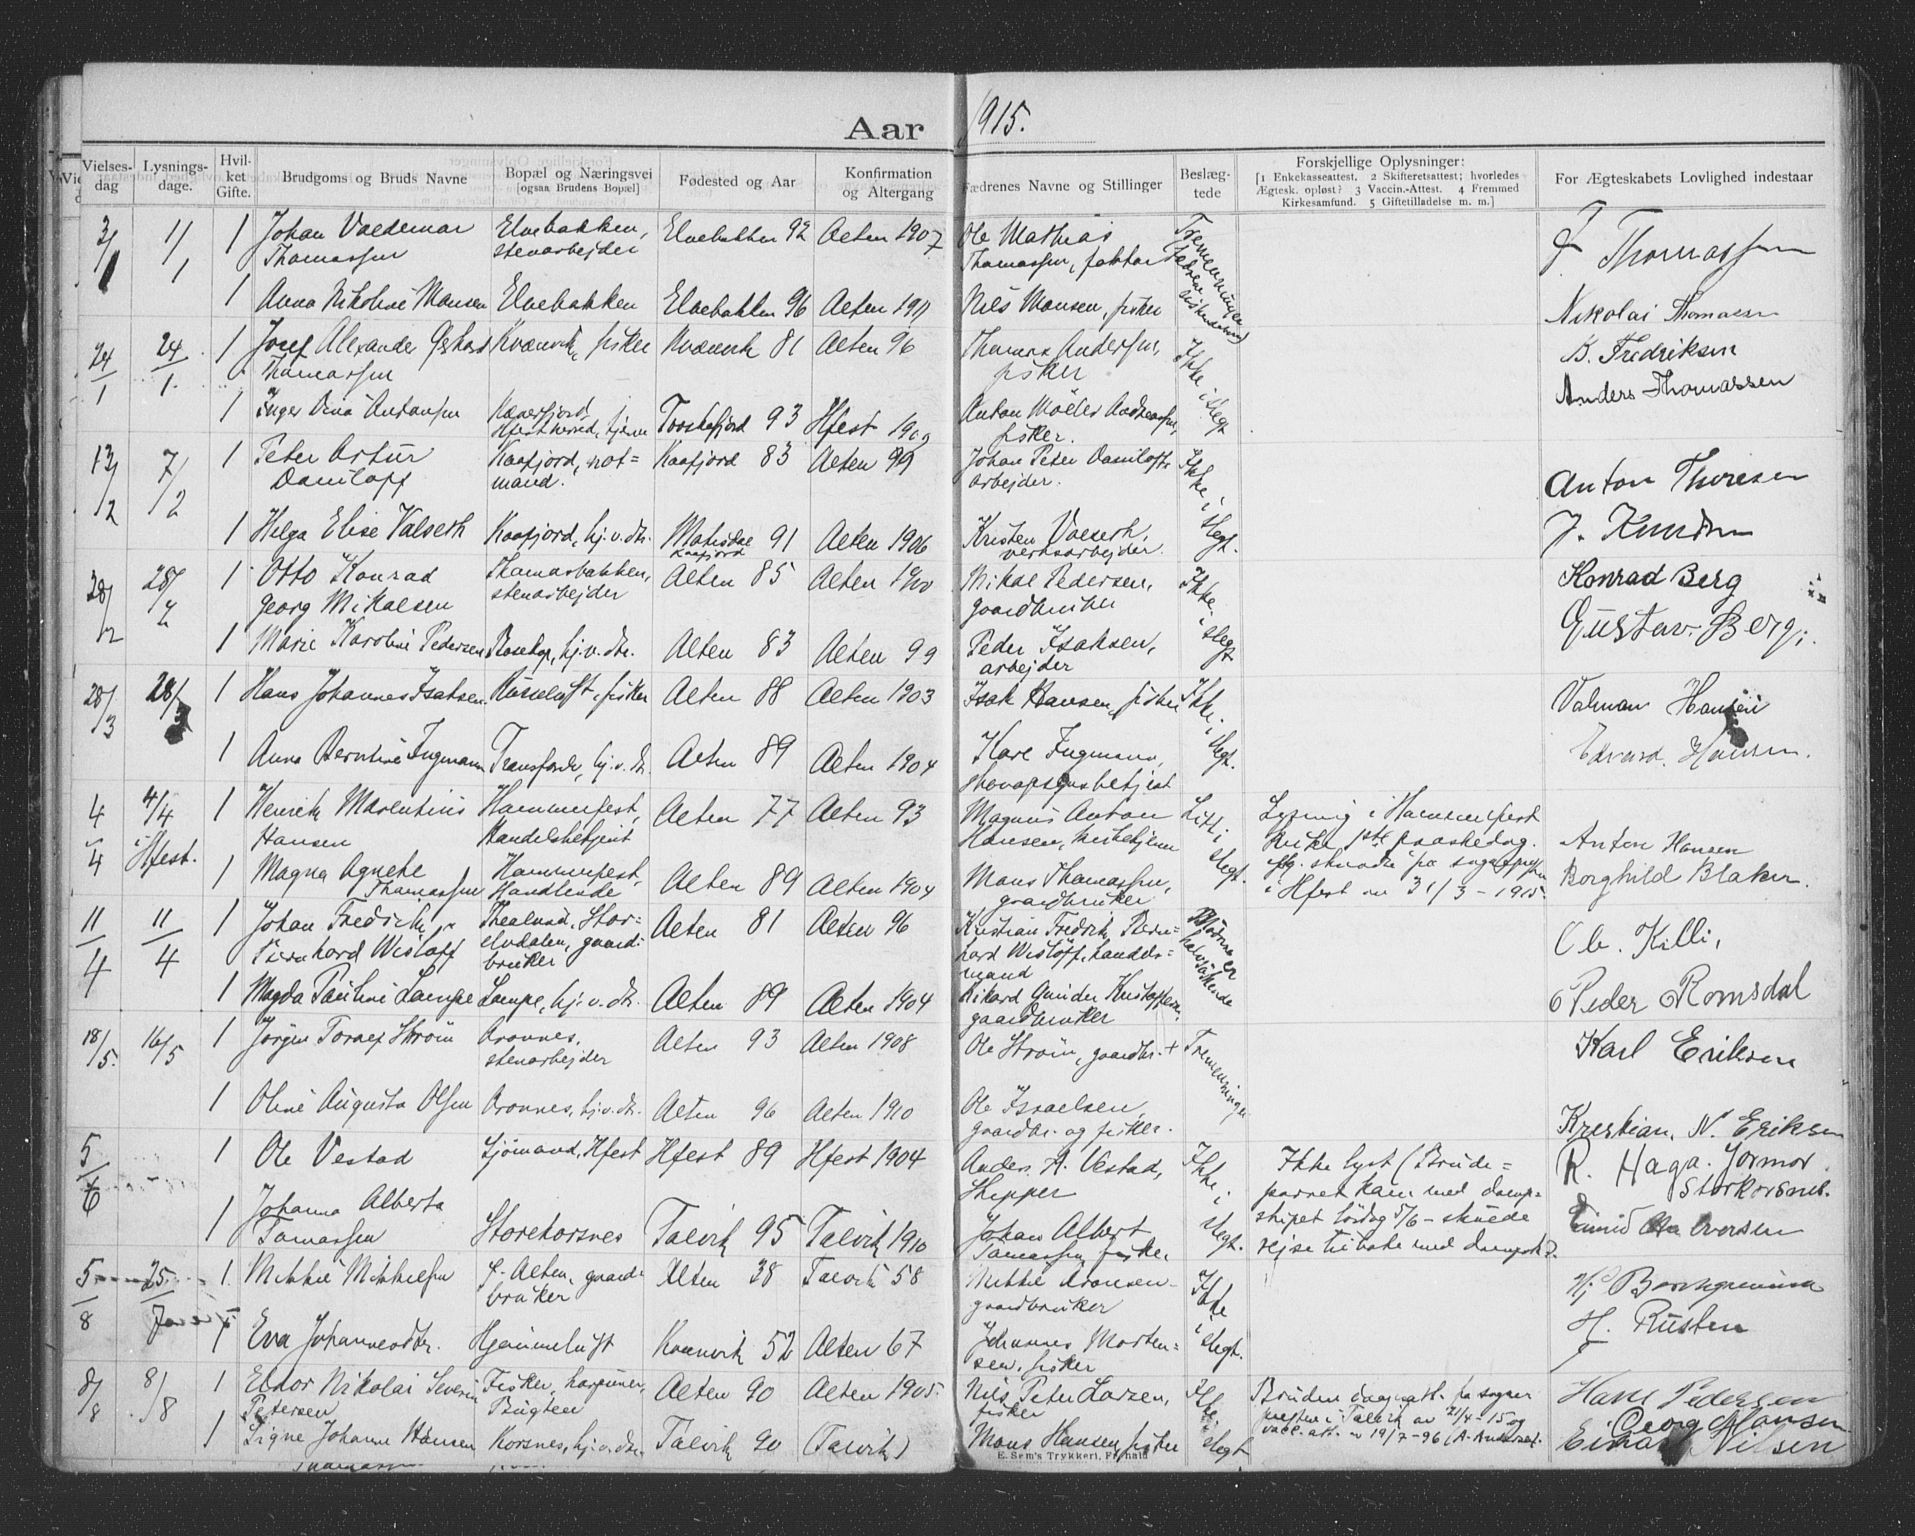 Aar 1915.
Vielses-dag Lysnings-dage. Hvil-ket Gifte. Brudgoms og Bruds Navne Bopæl og Næringsvei [ogsaa Brudens Bopæl] Fødested og Aar Konfirmation og Altergang Fædrenes Navne og Stillinger Beslæg-tede Forskjellige Oplysninger: [1 Enkekasseattest. 2 Skifteretsattest; hvorledes Ægtesk. opløst? 3 Vaccin.-Attest. 4 Fremmed Kirkesamfund. 5 Giftetilladelse m. m.] For Ægteskabets Lovlighed indestaar
3/1 1/1 1 Johan Valdemar Elvebakken, Elvebakken 92 Alten 1907 Ole Mathias Tremenninger
Thomassen stenarbejder Thomassen, faktor Thomassen
1 Anna Nikoline Mansen Elvebakken Elvebakken 96 Alten 1911 Nils Mansen, fisker Nikolai Thomassen
24/1 24/1. 1 Josef Alexander Gerhard Kvænvik, fisker Kvænvik 81 Alten 96 Thomas Andersen, Ikke i slegt B. Fredriksen
Thomassen fisker Anders Thomassen
1 Inger Dina Antonsen Torskefjord 93 Hfest 1909 Anton Möller Andreassen,
fisker.
13/2 7/2 1 Peter Artur Kaafjord, not= Kaafjord 83 Alten 99 Johan Peter Daniloff, Ikke i slegt. Anton Thoresen
Daniloff mand. arbejder.
1 Helga Elise Valseth Kaafjord, hj.v.dtr. Matisdal 91 Alten 1906 Kristen Valseth, J. Knudsen
Kaafjord verksarbejder
28/2 28/2 1 Otto Konrad Thomasbakken, Alten 85 Alten 1900 Mikal Pedersen, Ikke i slegt Konrad Berg
Georg Mikalsen stenarbejder gaardbruker Gustav. Berg.
1 Marie Karoline Pedersen Bosekop, hj.v.dtr. Alten 83 Alten 99 Peder Isaksen,
arbejder
28/3 28/3 1 Hans Johannes Isaksen Russeluft, fisker Alten 88 Alten 1903 Isak Hansen, fisker Ikke i slegt. Valman Hansen
1 Anna Berntine Fugmann Transfarelv, hj.v.dtr. Alten 89 Alten 1904 Karl Fugmann, Edvard. Hansen.
skovopsynsbetjent
4/4 4/4 i Hfest. 1 Henrik Marentinius Hammerfest, Alten 77 Alten 93 Magnus Anton Litt i slegt. Lysning i Hammerfest
Hansen Handelsbetjent Hansen, kirketjener kirke 1ste paaskedag. Anton Hansen
1 Magna Agnete Hammerfest, Alten 89 Alten 1904 Mons Thomassen, Borghild Blaker.
Thomassen Handlende gaardbruker i Hfest av 31/3-1915.
11/4 11/4 1 Johan Fredrik Stor= Alten 81 Alten 96 Kristian Fredrik Bern= Ole. Killi,
Bernhard Wisløff elvdalen, gaard= hard Wisløff, handels=
bruker mand
1 Magda Pauline Lampe Lampe, hj.v.dtr. Alten 89 Alten 1904 Rikard Gunder Kristoffersen, Peder Romsdal
gaardbruker
18/5. 16/5 1 Jörgen Toralf Ström Aronnes, Alten 93 Alten 1908 Ole Ström, gaardbr. + Tremenninger Karl Eriksen
stenarbejder
1 Oline Augusta Olsen Aronnes, hj.v.dtr. Alten 96 Alten 1910 Ole Israelsen, Kristian. N. Eriksen
gaardbr. og fisker.
5/6 1 Ole Vestad Sjömand, Hfest Hfest 89 Hfest 1904 Anders A. Vestad, Ikke i slegt. Ikke lyst (Brude= R. Haga. Jormor.
Skipper parret kom med damp= Storkorsnes.
1 Johanna Alberta Storekorsnes Talvik 95 Talvik 1910 Johan Albert skipet lördag 5/6 - skulde Iversen
Tomassen Tomassen, fisker reise tilbake med dampsk).
5/8 25/7 1. Mikkel Mikkelsen Alten, gaard= Alten 38 Talvik 58 Mikkel Aronsen Ikke i slegt. Hj Borchgrevink
bruker gaardbruker
1 Eva Johannesdtr. Hjemmeluft Kvænvik 52 Alten 67 Johannes Morten= H. Rusten
sen, fisker
8/8 8/8 1 Einar Nikolai Severin Fisker, harpuner, Alten 90 Alten 1905. Nils Peter Larsen, Ikke i slegt Bruden daapsatt. fra sogne= Hans Pedersen
Petersen Bugten fisker presten i Talvik av 21/4-15 og Georg Hansen
1 Signe Johanne Hansen Korsnes, hj.v.dtr. Talvik 90 (Talvik) Mons Hansen, fisker vacc. att. av 19/7-96 Einar Nilsen
E. Sem's Trykkeri, Fr.hald